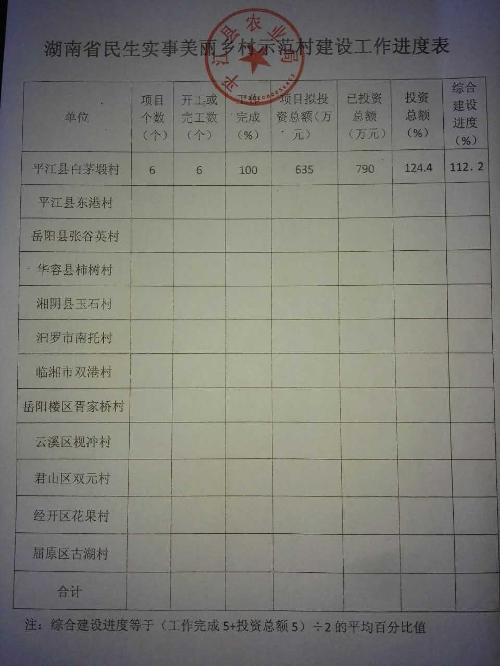 湖南省民生实事美丽乡村示范村建设工作进度表
平江县农业局
单位 项目个数（个） 开工或完工数（个） 工作完成（%） 项目拟投资总额（万元） 已投资总额（万元） 投资总额（%） 综合建设进度（%）
平江县白茅塅村 6 6 100 635 790 124.4 112.2
平江县东港村
岳阳县张谷英村
华容县柿树村
湘阴县玉石村
汨罗市南托村
临湘市双港村
岳阳楼区胥家桥村
云溪区枧冲村
君山区双元村
经开区花果村
屈原区古湖村
合计
注：综合建设进度等于（工作完成5+投资总额5）÷2的平均百分比值